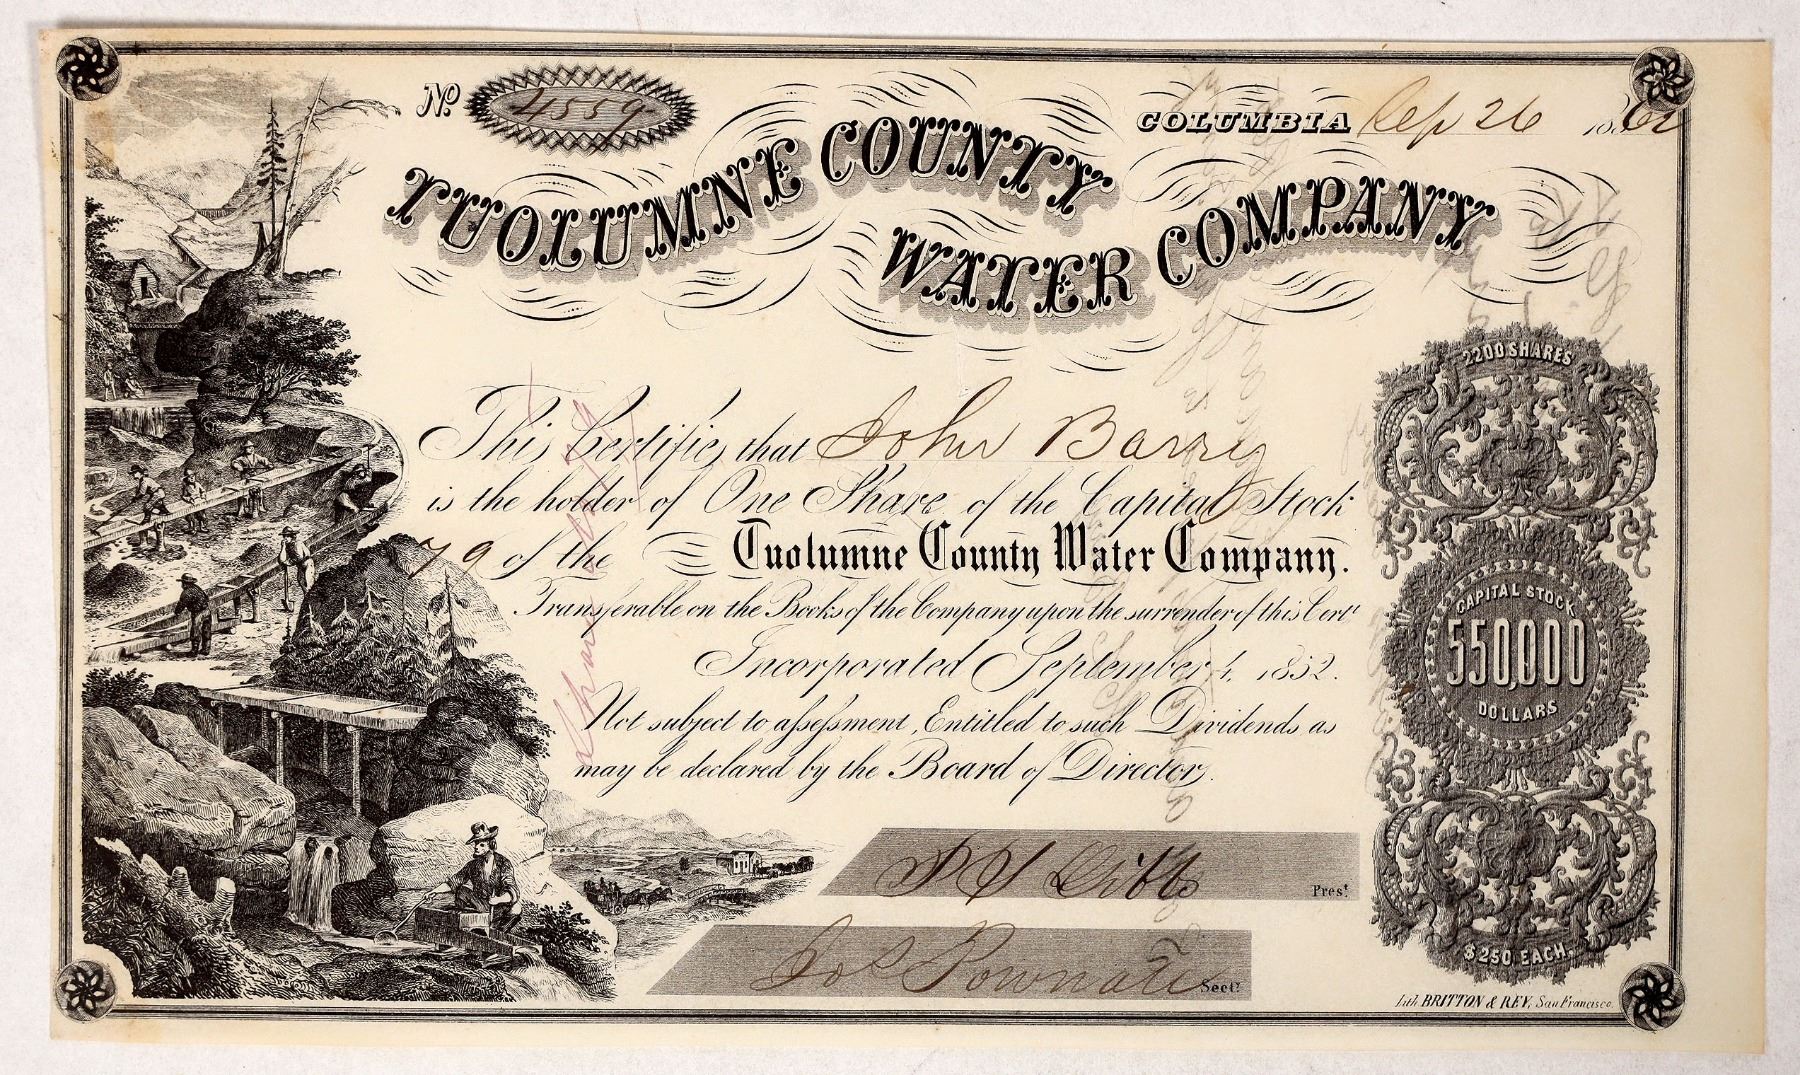 No. 4559
COLUMBIA Sep 26 1862
TUOLUMNE COUNTY
WATER COMPANY
This Certifies that John Barry
is the holder of One Share of the Capital Stock
79 of the Tuolumne County Water Company.
Transferable on the Books of the Company upon the surrender of this Cert.
Incorporated September 4, 1852.
Not subject to assessment, Entitled to such Dividends as
may be declared by the Board of Directors.
Gibbs
Prest.
Jos Pownall
Sect.
2200 SHARES
CAPITAL STOCK
550,000
DOLLARS
$250 EACH.
Lith. BRITTON & REY, San Francisco.
Share